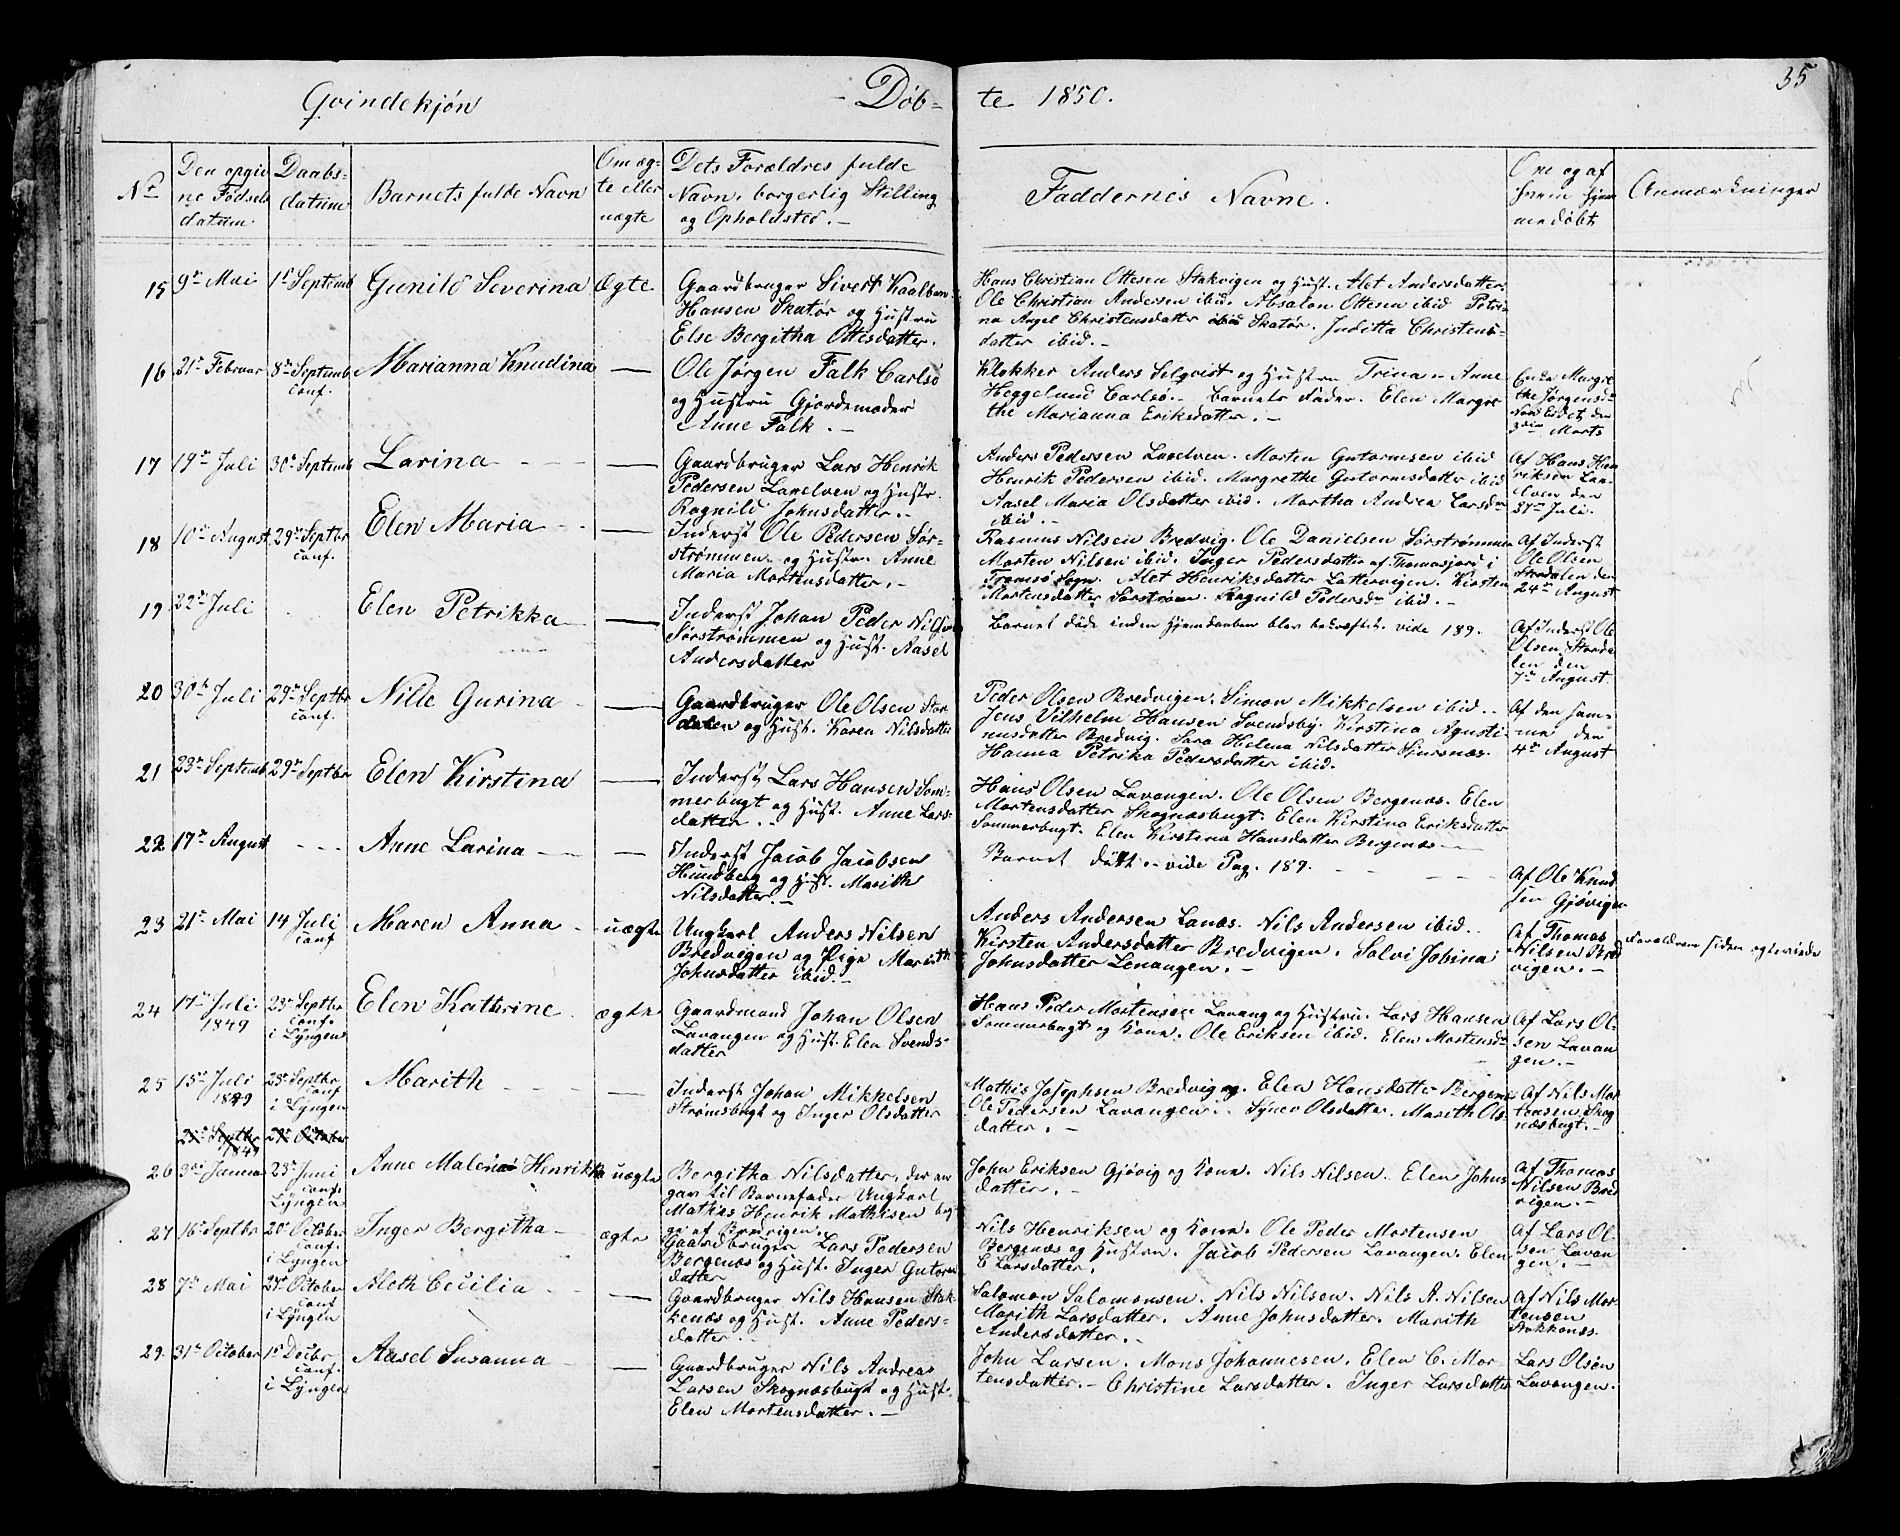 35
Qvindekjøn Døb- te 1850.
Nr
Den opgiv
ne Fødsels
datum
Daabs-
datum
Barnets fulde Navn
Om æg-
te eller
uægte
Dets Forældres fulde
Navn, borgerlig Stilling
og Opholdsted. -
Faddernes Navne.
Om og af
hvem hjem
medøbt
Anmærkninger
15 9de Mai 1st Septemb Gunild Severina Ægte
Gaardbruger Sivert
Hansen Skatør og Hustru
Else Bergitha Ottesdatter.
Hans Christian Ottesen Stakvigen og Hust. Alet Andersdatter.
Ole Christian Andersen ibid. Absalon Ottesen ibid Petri-
na Angel Christensdatter Skatør. Juditta Christens-
datter ibid. -
16 21de Februar 8de Septemb conf. Marianna Knudina —
Ole Jørgen Falk Carlsø
og Hustru Gjordemoder
Anne Falk. -
Klokker Anders Selqvist og Hustru Trina - Anne
Heggelund Carlsø. - Barnets Fader. Elen Margre
the Marianna Eriksdatter. -
Enke Margre
the Jørgensd
Nord Eidet den
3die Marts
17 19de Juli 30te Septemb Larina - - - —
Gaardbruger Lars Henrik
Pedersen Lanelven og Hustr.
Ragnild Johnsdatter. -
Anders Pedersen Lanelven. Morten Gutormsen ibid
Henrik Pedersen ibid. Margrethe Gutormsdatter ibid
Aasel Maria Olsdatter ibid. Martha Andrea Larsd
ibid. -
Af Hans Hen
riksen Lan-
elven den
27de Juli.
18 10de August 29de Septbr conf. Elen Maria - - —
Inderst Ole Pedersen Sør-
strømmen og Hustru Anne
Maria Mortensdatter. -
Rasmus Nilsen Bredvig. Ole Danielsen Sørstrømmen
Morten Nilsen ibid. Inger Pedersdatter af Thomasjord i
Tromsø Sogn. Alet Henriksdatter Lattervigen. Kirsten
Mortensdatter Sørstrøm. Ragnild Pedersd ibid. -
Af Inderst
Ole Olsen
Stordalen den
24de August
19 22de Juli - Elen Petrikka —
Inderst Johan Peder Nilsen
Sørstrømmen og Hust. Aasel
Andersdatter
Barnet døde inden Hjemdaaben blev bekræftet. vide 189.
Af Inderst Ole
Olsen Storda-
len den
7de August
20 30te Juli 29de Septbr conf. Nille Gurina - —
Gaardbruger Ole Olsen Stor
dalen og Hust. Karen Nilsdatter
Peder Olsen Bredvigen. Simon Mikkelsen ibid. -
Jens Vilhelm Hansen Svendsby. Kirstina Agusti-
nusdatter Bredvig. Sara Helena Nilsdatter Sjursnæs.
Hanna Petrika Pedersdatter ibid.
Af den sam-
me den
4de August
21 23de Septemb 29de Septbr Elen Kirstina —
Inderst Lars Hansen Som-
merbugt og Hust. Anne Lars-
datter. -
Hans Olsen Lavangen. Ole Olsen Bergenæs. Elen
Mortensdatter Skognæsbugt. Elen Kirstina Eriksdatter
Sommerbugt. Elen Kirstina Hansdatter Bergenæs -
22 17de August - - - Anne Larina - —
Inderst Jacob Jacobsen
Hundberg og Hst. Marith
Nilsdatter. -
Barnet dødt - vide Pag. 189. - - -
Af Ole Knud
sen Gjøvigen
23 21de Mai 14 Juli conf Maren Anna - uægte
Ungkarl Anders Nilsen
Bredvigen og Pige Marith
Johnsdatter ibid. -
Anders Andersen Lanæs. Nils Andersen ibid. -
Kirsten Andersdatter Bredvigen. Salvi Jobina
Johnsdatter Lavangen. -
Af Thomas
Nilsen Bred
vigen. -
Forældrene siden egteviede
24 17de Juli 1849 23de Septbr conf. i Lyngen Elen Kathrine ægte
Gaardmand Johan Olsen
Lavangen og Hust. Elen Svends-
datter
Hans Peder Mortensen Lavang og Hustru. Lars Hansen
Sommerbugt og Kone. Ole Eriksen ibid. Elen Mortensd
Af Lars Ol-
sen Lavan
gen. -
25 15de Juli 1849 23de Septbr conf i Lyngen Marith - - - —
Inderst Johan Mikkelsen
Strømsbugt og Inger Olsdatter
Mathis Josephsen Bredvig og. Elen Hansdatter Bergenæs
Ole Pedersen Lavangen. - Synev Olsdatter. Marith Ols-
datter. -
Af Nils Mor
tensen Skog
næsbugt. -
Septbr 1849 October
26 3die Januar 23de Juni conf. Lyngen Anne Malena Henrikka uægte
Bergitha Nilsdatter, der an
gav til Barnefader Ungkarl
Mathis Henrik Mathisen beg-
ge af Bredvigen.
John Eriksen Gjøvig og Kone. Nils Nilsen. Elen Johns
datter. -
Af Thomas
Nilsen Bred
vigen. -
27 16de Septbr 20de October conf. i Lyngen Inger Bergitha - ægte
Gaardbruger Lars Pedersen
Bergenæs og Hust. Inger Gutorms
datter
Nils Henriksen og Kone. Ole Peder Mortensen
Bergenæs og Hustru. Jacob Pedersen Lavangen. Elen
E Larsdatter.
Af Lars Ol-
sen Lavan
gen. -
28 7de Mai 27de October conf i Lyngen Aleth Cecilia - —
Gaardbruger Nils Hansen Stak-
kenæs og Hust. Anne Peders-
datter. -
Salomon Salomonsen. Nils Nilsen. Nils A. Nilsen
Marith Larsdatter. Anne Johnsdatter. Marith
Andersdatter. -
Af Nils Mor-
tensen
Stakkenæs.
29. 31te October 1st Decbr conf. i Lyngen Aasel Susanna - —
Gaardbruger Nils Andreas
Larsen Skognæsbugt og Hust.
Elen Mortensdatter. -
John Larsen. Mons Johannesen. Elen C. Mor-
tensdatter. - Christine Larsdatter. Inger Larsdatter
Lars Olsen
Lavangen.